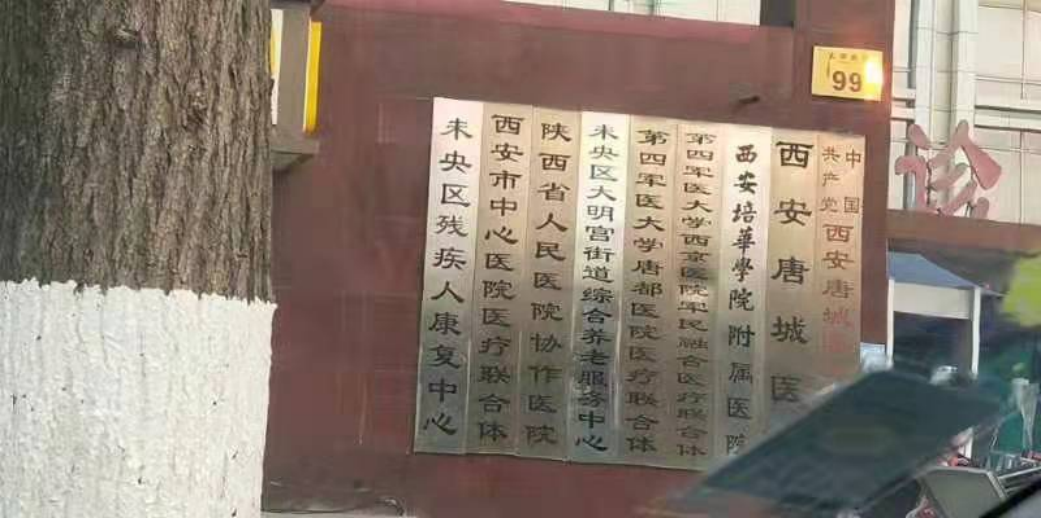 99
诊
中国
共产党
西安唐城
西安唐城医
西安培華學院附属医院
第四军医大学西京医院军民融合医疗联合体
第四军医大学唐都医院医疗联合体
未央区大明宫街道综合养老服务中心
陕西省人民医院协作医院
西安市中心医院医疗联合体
未央区残疾人康复中心